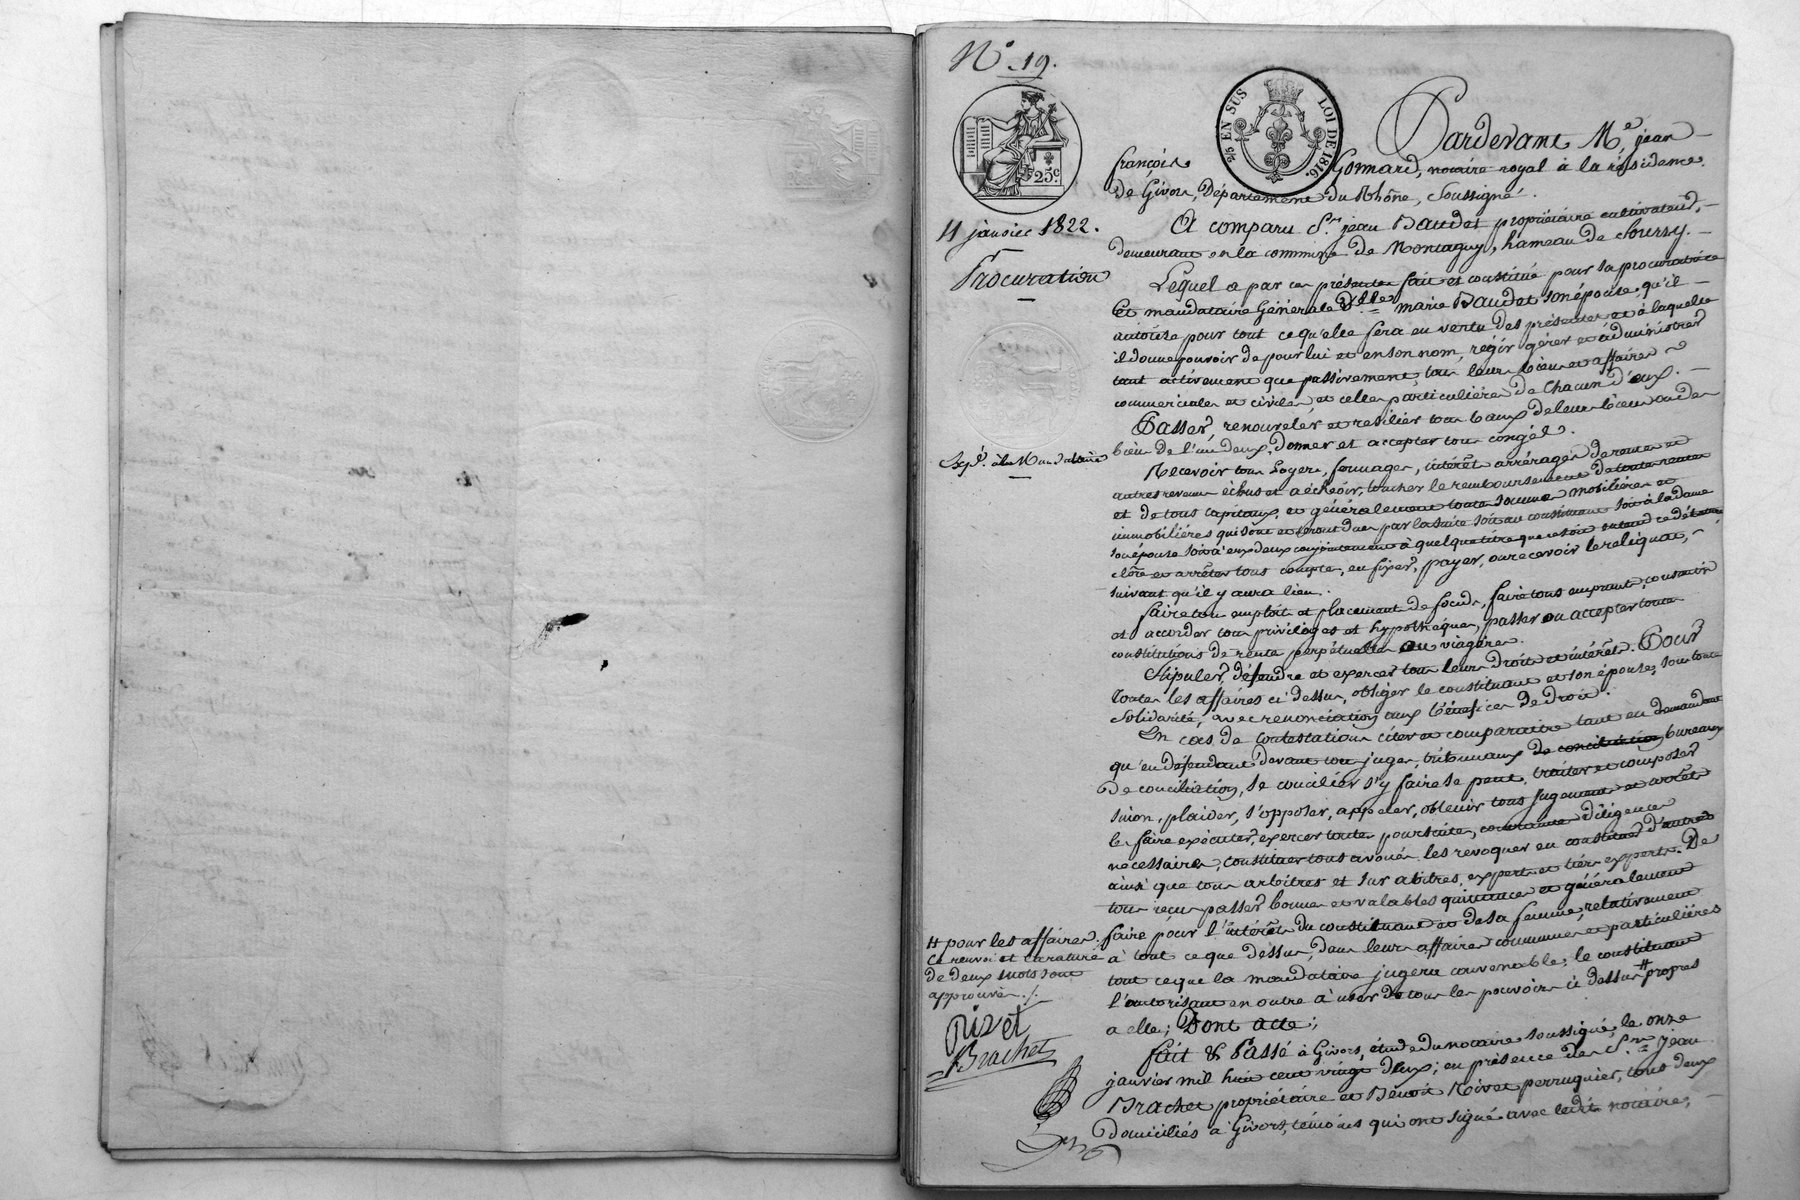 N.° 19.
25 EN SUS LOI DE 1816.
25c
11 janvier 1822.
Procuration
Exp.é à la Mandataire
Pardevant M.e jean
françois Gonnard, notaire royal à la résidence
de Givors, Département du Rhône, Soussigné.
A comparu S.r jean Baudet propriétaire cultivateur,
demeurant en la commune de Montagny, hameau de Sourzy.
Lequel a par ces présentes fait et constitué pour sa procuratrice
et mandataire Générale D.lle marie Baudet son épouse, qu'il
autorise pour tout ce qu'elle fera en vertu des présentes et à laquelle
il donne pouvoir de pour lui et en son nom, régir gérer et administrer
tant activement que passivement, tous leurs biens et affaires
commerciales et civiles, et celles particulières de Chacun d'eux.
Passer, renouveler et resilier tous baux de leurs biens ou des
biens de l'un d'eux, donner et accepter tous congés.
Recevoir tous Loyers, fermages, intérêts arrérages de rentes et
autres revenus échus et à échoir, toucher le remboursement de toutes rentes
et de tous capitaux, et généralement toutes sommes mobilières et
immobilières qui sont et seront dues par la suite soit au constituant soit à la dame
son épouse soit à eux deux conjointement à quelque titre que ce soit
clore et arrêter tous comptes, en fixer, payer, ou recevoir le reliquat,
suivant qu'il y aura lieu.
faire tous emplois et placements de fonds, faire tous emprunts, consentir
et accorder tous privilèges et hypothèques, passer ou accepter toutes
constitutions de rente perpétuelles ou viagères.
Stipuler, défendre et exercer tous leurs droits et intérêts. Pour
toutes les affaires ci dessus, obliger le constituant et son épouse, sous toute
solidarité, avec renonciation aux bénéfices de droit.
En cas de contestations citer et comparaître tant en demandant
qu'en défendant devant tous juges, tribunaux de conciliation bureaux
de conciliation, se concilier s'y faire se peut, traiter et composer
sinon, plaider, s'opposer, appeler, obtenir tous jugements et arrêts
le faire exécuter, exercer toutes poursuites, contraintes diligences
necessaires, constituer tous avoués, les revoquer en constituer d'autres
ainsi que tous arbitres et sur abitres, experts et tiers experts. De
tous reçus passer bonnes et valables quittances et généralement
faire pour l'intérêt du constituant et de sa femme, relativement
à tout ce que dessus, dans leurs affaires communes et particulières
tout ce que la mandataire jugera convenable, le constituant
l'autorisant en outre à user de tous les pouvoirs ci dessus # propres
a elle; Dont acte;
# pour les affaires
Ce renvoi et la rature
de deux mots sont
approuvés ./.
Rivet
Brachet
fait & Passé à Givors, étude du notaire soussigné, le onze
janvier mil huit cent vingt deux; en présence des S.rs jean
Brachet propriétaire et Bénoit Rivet perruquier, tous deux
domiciliés à Givors, témoins qui ont signé avec ledit notaire,